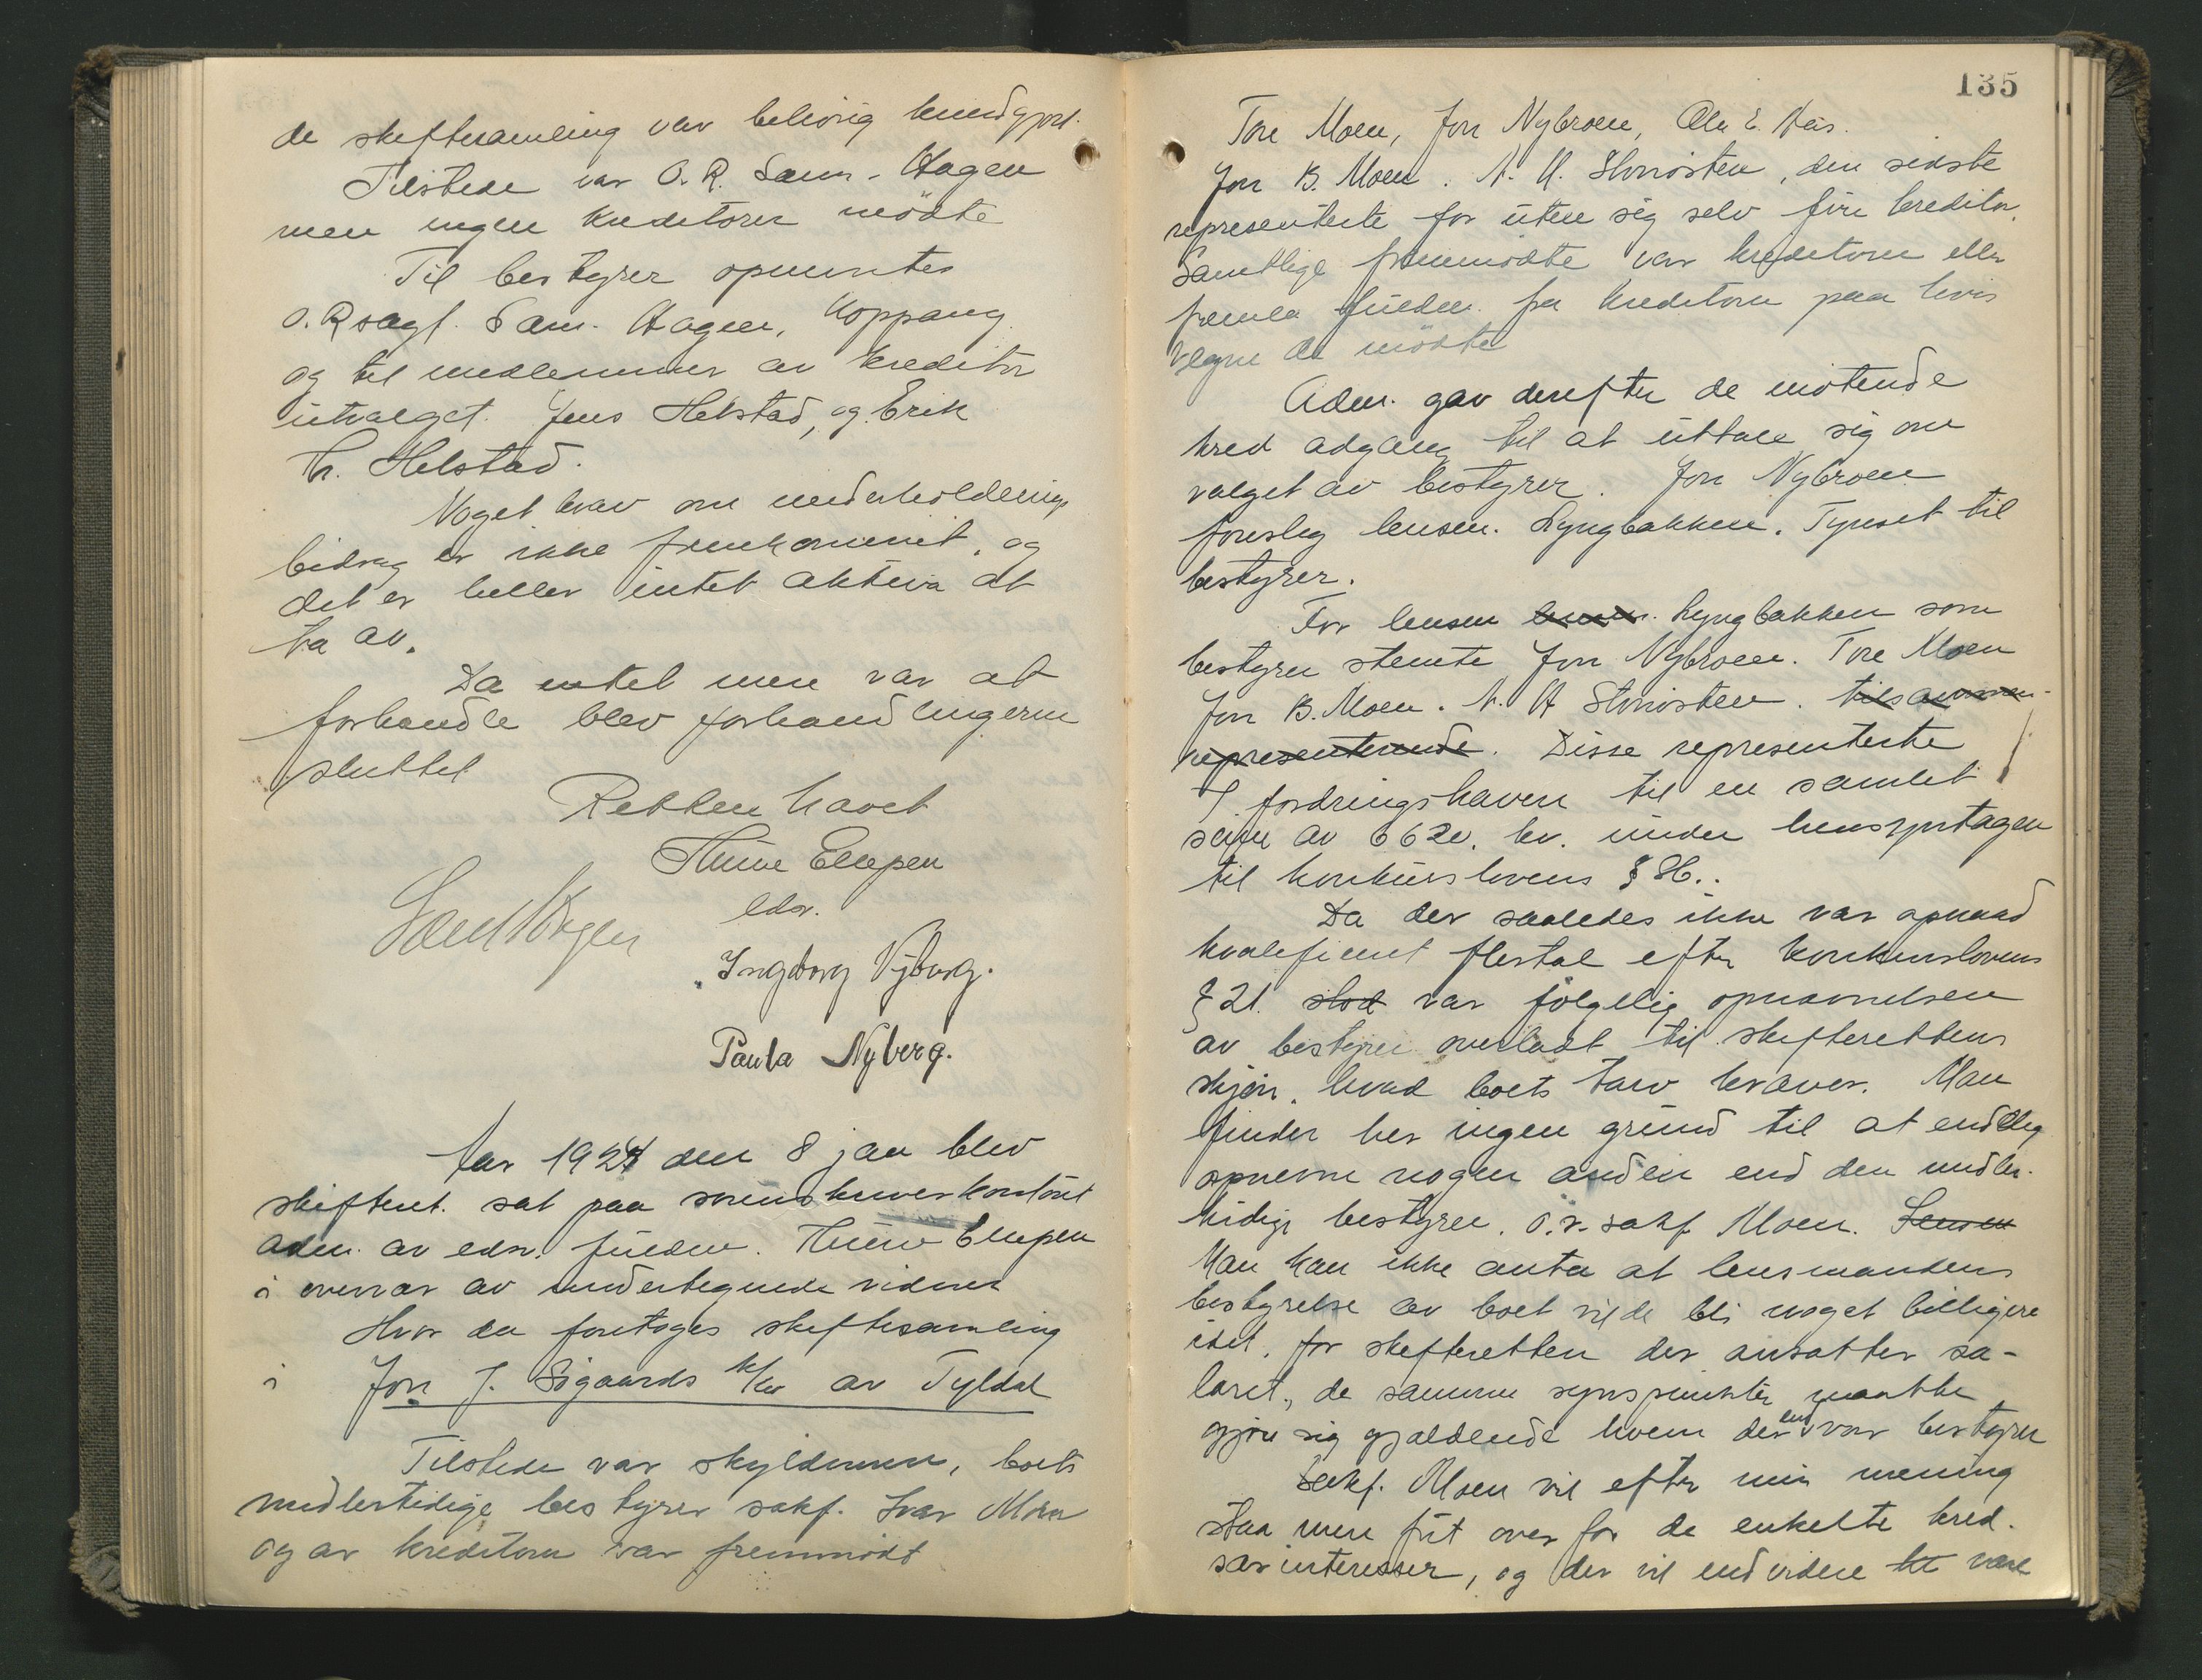 de skiftesamling var behörig kundgjort.
Tilstede var O. R. Sam. Hagen
men ingen kreditorer mödte
Til bestyrer opnevntes
O. Rsagf. Sam. Hagen, Koppang
og til medlemmer av kreditor
utvalget. Jens Helstad, og Erik
Th. Helstad.
Noget krav om underholdnings
bidrag er ikke fremkommet, og
det er heller intet aktiva at
ta av.
Da intet mere var at
forhandle blev forhandlingerne
sluttet
Retten hævet
Thune Ellepen
edsv.
Sam Hagen
Ingborg Nyberg.
Paula Nyberg.
Aar 1924 den 8 jan blev
skifteret. sat paa sorenskriverkontoret
adm. av edsv. fuldm. Thune Ellepen
i overvær av undertegnede vidner
Hvor da foretoges skiftesamling
i Jon J. Sögaards k/bo av Tyldal
Tilstede var skyldneren, boets
midlertidige bestyrer sakf. Ivar Moen
og av kreditorer var fremmödt
135
Tore Moen, Jon Nybroen, Ola E. Aas.
Jon B. Moen. N. H. Storösten, den sidste
representerte for uten sig selv fire kreditor.
Samtlige fremmödte var kreditorer eller
fremla fuldm. fra kreditorer paa hvis
vegne de mödte
Adm. gav derefter de mötende
kred adgang til at uttale sig om
valget av bestyrer. Jon Nybroen
foreslog lensm. Lyngbakken. Tynset til
bestyrer.
For lensm lensm. Lyngbakken som
bestyrer stemte Jon Nybroen. Tore Moen
Jon B. Moen. N. H Storösten. tilsammen
representerende. Disse representerte
7 fordringshavere til en samlet
sum av 6620. kr. under hensyntagen
til konkurslovens § 86.
Da der saaledes ikke var opnaad
kvalificert flertal efter konkurslovens
§ 21. stod var fölgelig opnævnelsen
av bestyrer overladt til skifterettens
skjön, hvad boets tarv kræver. Man
finder her ingen grund til at endelig
opnevne nogen anden end den midler-
tidige bestyrer. O.r. sakf Moen. Lensm
Man kan ikke anta at lensmandens
bestyrelse av boet vilde bli noget billigere
idet, for skifteretten der ansætter sa-
læret, de samme synspunkter maatte
gjöre sig gjældende hvem der end var bestyrer
Sakf. Moen vil efter min mening
staa mere frit over for de enkelte kred.
særinteresser, og der vil endvidere bli være